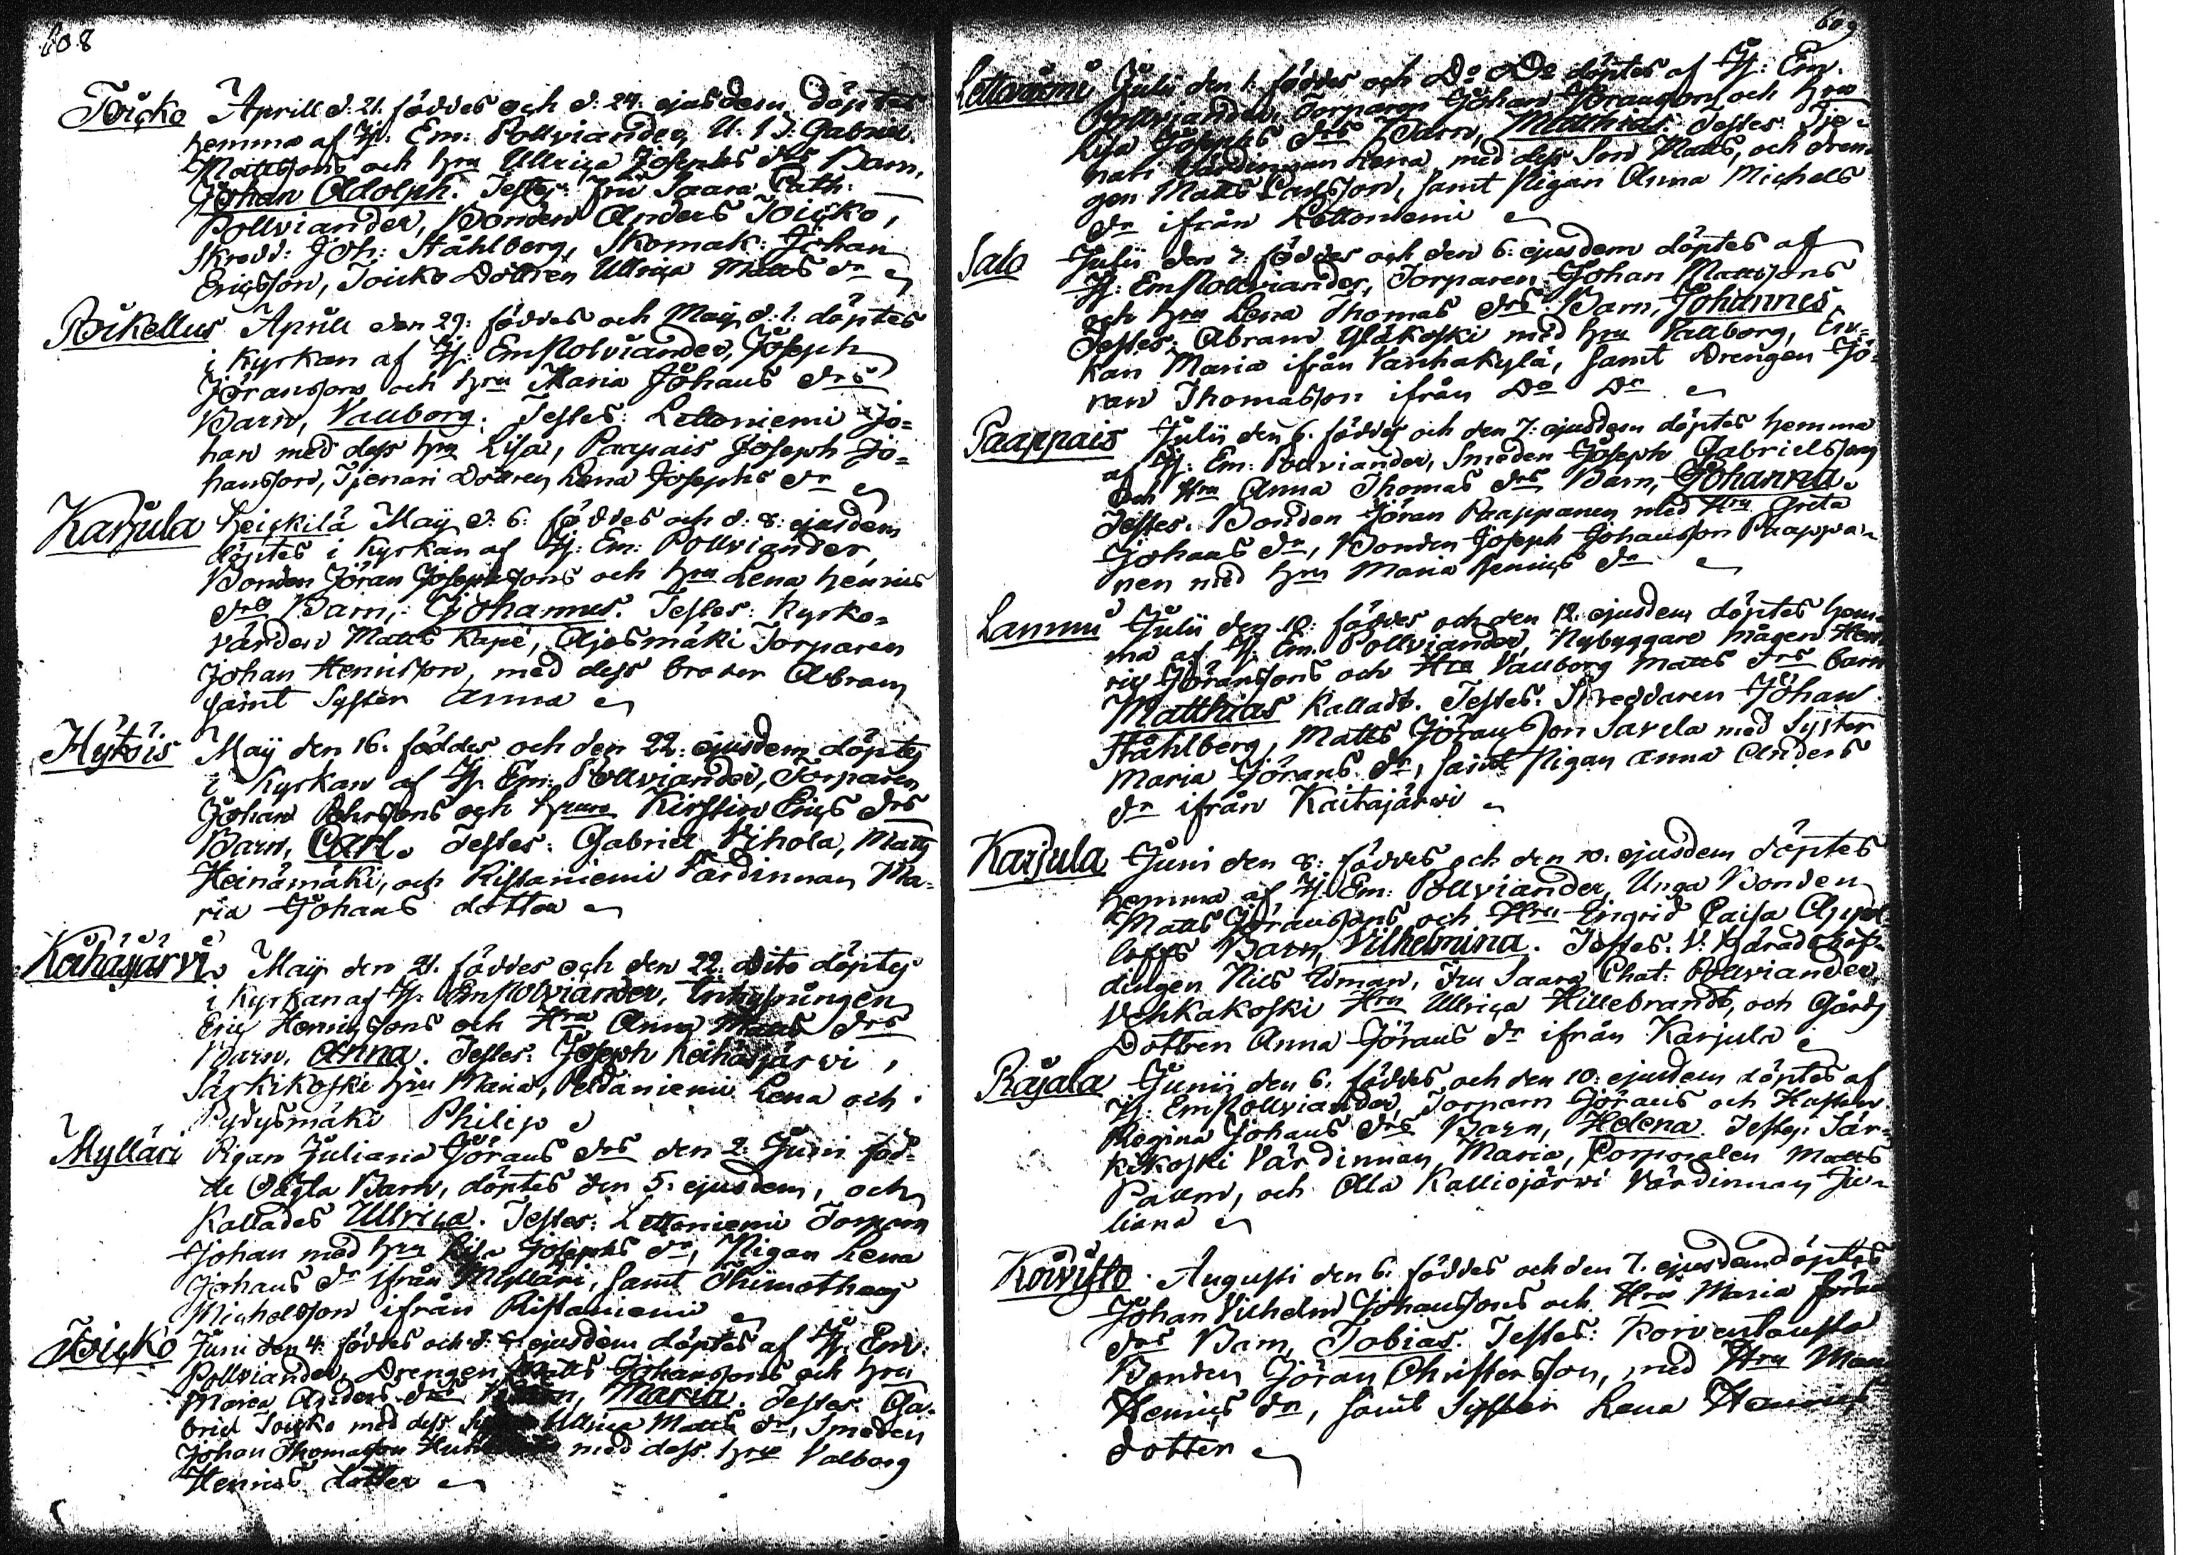 608
Toicko Aprill d. 21. föddes och d. 24. ejusdem döptes
hemma af Hj: Em: Pollviander, U. B. Gabriel
Mattssons och hru Ullrica Josephs drs Barn,
Johan Adolph. Testes: Fru Saara Cath:
Pollviander, Bonden Anders Toicko,
Skredd: Joh: Ståhlberg, Skomak: Johan
Ericsson, Toicko Dottren Ullrica Matts dr
Poikellus Aprill den 29. föddes och Maij d. 1. döptes
i Kyrkan af Hj: Em Pollviander, Joseph
Göranssons och hru Maria Johans drs
Barn, Vallborg. Testes: Lettoniemi Jo=
han med dess hru Lisa, Paapais Joseph Jo=
hansson, Tjenari Dottren Lena Josephs dr
Karjula Heickilä Maij d. 6. föddes och d. 8. ejusdem
döptes i Kyrkan af Hj: Em: Pollviander,
Bonden Jöran Josephssons och hru Lena Henrics
drs Barn, Johannes. Testes: Kyrko=
värden Matts Kape, Ajosmäki Torparen
Johan Henrisson, med dess broder Abram
samt Syster Anna
Hytöis Maij den 16. föddes och den 22. ejusdem döptes
i Kyrkan af Hj. Em. Pollviander, Torparen
Johan Pehrssons och hrun Kirstin Erics drs
Barn, Carl. Testes: Gabriel Vihola, Matts
Heinämäki, och Ristaniemi Värdinnan Ma=
ria Johans dotter
Keihäsjärvi Maij den 21. föddes och den 22. dito döptes
i Kyrkan af Hj. Em Pollviander, Inhysingen
Eric Henricssons och Hru Anna Matts drs
Barn, Anna. Testes: Joseph Keihäsjärvi,
Särkikoski hru Maria, Peldaniemi Lena och
Pydysmäki Philip
Mylläri Pigan Juliana Görans drs den 2. Junii föd=
de Oägta Barn, döptes den 5. ejusdem, och
Kallades Ullrica. Testes: Lettoniemi Torparn
Johan med hru Lisa Josephs dr, Pigan Lena
Johans dr ifrån Mylläri, samt Thimotheus
Michelsson ifrån Ristaniemi
Toicko Juni den 4. föddes och d. ejusdem döptes af Hj. Em:
Pollviander, Drengen Matts Johanssons och hru
Maria Anders drs Barn, Maria. Testes: Ga=
briel Toicko med dess Ullrica Matts dr, Smeden
Johan Thomasson med dess hru Valborg
Henrics dotter
609
Lettoniemi Julii den 1. föddes och Do Do döptes af Hj: Em.
Pollviander, Torparen Johan Göransson och hru
Lisa Josephs drs Barn, Matthias. Testes: Tje=
nari Värdinnan Lena, med dess Son Matts, och Dren=
gen Matts Carlsson, samt Pigan Anna Michels
dr ifrån Lettoniemi
Salo Julii den 3. föddes och den 6. ejusdem döptes af
Hj: Em Pollviander, Torparen Johan Mattssons
och hru Lena Thomas drs Barn, Johannes.
Testes: Abram Yläkoski med hru Vallborg, En=
kan Maria ifrån Vanhakylä, samt Drengen Jö=
ran Thomasson ifrån Do Do
Paappais Julii den 6. föddes och den 7. ejusdem döptes hemma
af Hj: Em: Pollviander, Smeden Joseph Gabrielssons
och Hru Anna Thomas drs Barn, Johanna.
Testes: Bonden Jöran Paappanen med Hru Greta
Johans dr, Bonden Joseph Johansson Paappa=
nen med hru Maria Henrics dr
Lammi Julii den 10. föddes och den 12. ejusdem döptes hem=
ma af Hj. Em. Pollviander, Nybyggare mågen Hen=
ric Göranssons och Hru Vallborg Matts drs barn
Matthias Kalladt. Testes: Skreddaren Johan
Ståhlberg, Matts Göransson Savela med Syster
Maria Görans dr, samt Pigan Anna Anders
dr ifrån Kaitajärvi
Karjula Juni den 8. föddes och den 10. ejusdem döptes
hemma af Hj. Em: Pollviander, Unga Bonden
Matts Göranssons och Hru Engrid Caisa
loffs Barn, Vilhelmina. Testes: V. Häradshöf=
dingen Nils Idman, Fru Saara Chat: Pollviander,
Vehkakoski Hru Ullrica Hillebrandt, och Gårds
Dottren Anna Görans dr ifrån Karjula
Rajala Junii den 6. föddes och den 10. ejusdem döptes af
Hj: Em Pollviander, Torparn Görans och Hustru
Regina Johans drs Barn, Helena. Testes: Sär=
kikoski Värdinnan Maria, Corporalen Matts
Pallm, och Olla Kalliojärvi Värdinnan Ju=
liana
Koivisto Augusti den 6. föddes och den 7. ejusdem döptes
Johan Vilhelm Johanssons och Hru Maria Jörans
drs Barn, Tobias. Testes: Korventausta
Bonden Jöran Christersson, med Hru Maria
Henrics dr, samt Systren Lena Henrics
dotter